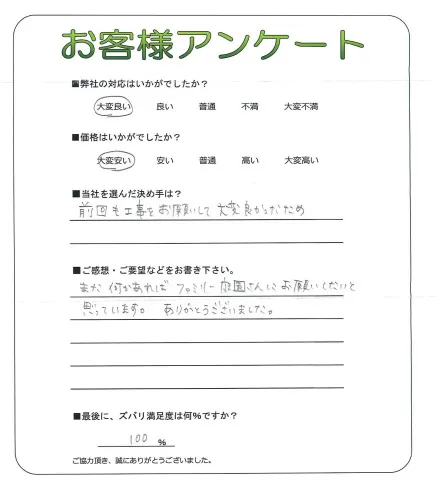 お客様アンケート
■弊社の対応はいかがでしたか？
大変良い 良い 普通 不満 大変不満
■価格はいかがでしたか？
大変安い 安い 普通 高い 大変高い
■当社を選んだ決め手は？
前回も工事をお願いして大変良かったため
■ご感想・ご要望などをお書き下さい。
また何かあればファミリー庭園さんにお願いしたいと
思っています。ありがとうございました。
■最後に、ズバリ満足度は何％ですか？
100 ％
ご協力頂き、誠にありがとうございました。